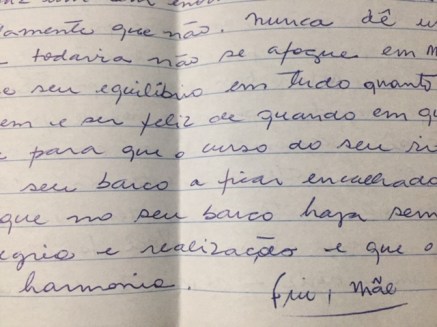 que não. nunca dê
todavia não se afogue em
seu equilíbrio em tudo quanto
e ser feliz de quando em
para que o curso do seu
seu barco a ficar encalhado
que no seu barco haja sem
e realização e que o
harmonia. fui, mãe